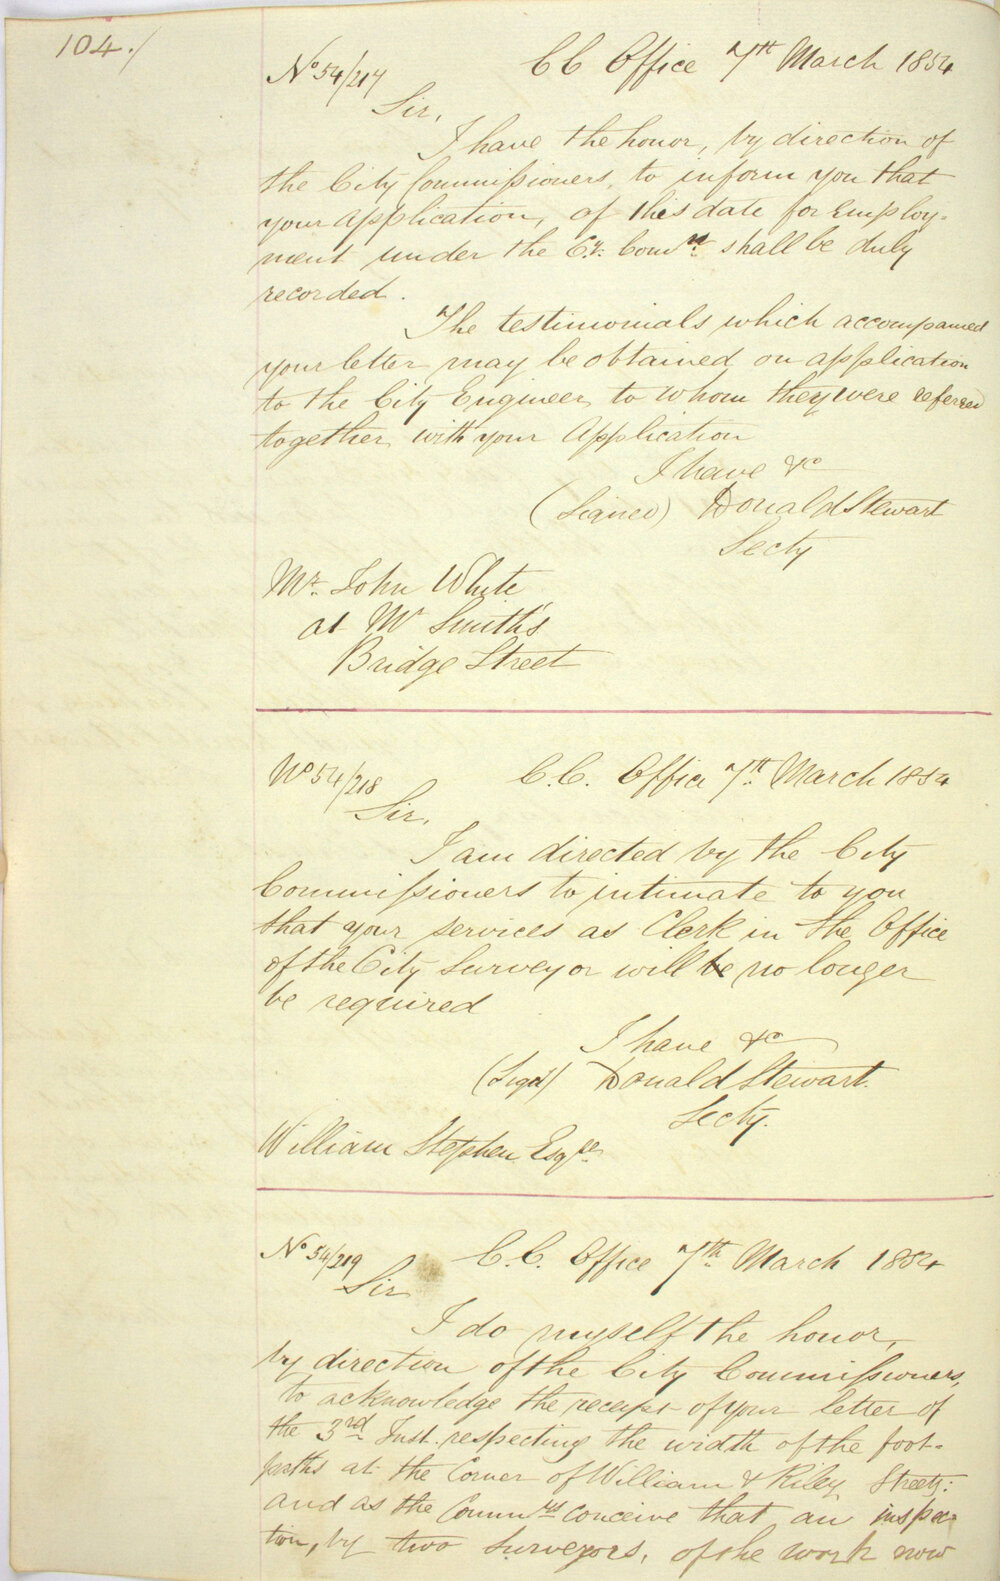 104./
No 54/217
CC Office 7th March 1854
Sir,
I have the honor, by direction of
the City Commissioners, to inform you that
your application, of this date for Employ-
ment under the Cy. Comrs. shall be duly
recorded.
The testimonials which accompanied
your letter may be obtained on application
to the City Engineer to whom they were referred
together with your Application
I have &c
(Signed) Donald Stewart
Secty
Mr. John White
at Mr Smith's
Bridge Street
No 54/218
C.C. Office 7th March 1854
Sir,
I am directed by the City
Commissioners to intimate to you
that your services as Clerk in the Office
of the City Surveyor will be no longer
be required
I have &c
(Sigd) Donald Stewart.
Secty.
William Stephen Esqre
No 54/219
C.C. Office 7th March 1854
Sir
I do myself the honor,
by direction of the City Commissioners,
to acknowledge the receipt of your letter of
the 3rd Inst. respecting the width of the foot-
paths at the Corner of William & Riley Streets:
and as the Commrs conceive that an inspec-
tion, by two surveyors, of the work now